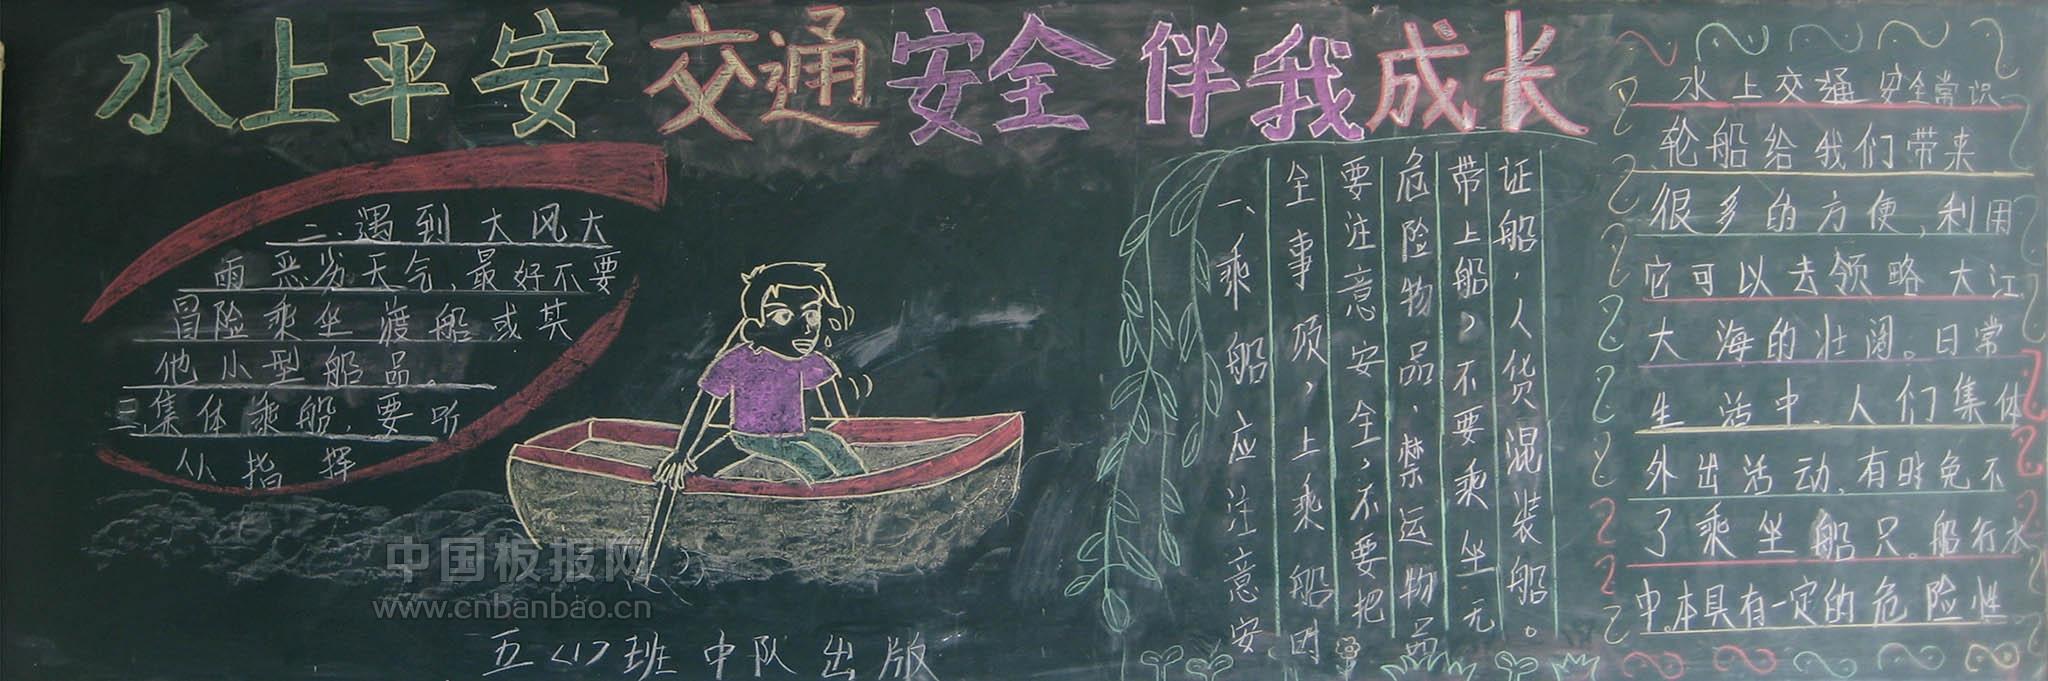 水上平安 交通安全 伴我成长
二、遇到大风大
雨恶劣天气,最好不要
冒险乘坐渡船或其
他小型船品。
三、集体乘船,要听
从指挥
一、乘船应注意安
全事项,上乘船时
要注意安全,不要把
危险物品、禁运物品
带上船,不要乘坐无
证船,人货混装船。
水上交通安全常识
轮船给我们带来
很多的方便,利用
它可以去领略大江
大海的壮阔。日常
生活中,人们集体
外出活动,有时免不
了乘坐船只。船行水
中本具有一定的危险性
五(1)班中队出版
中国板报网
www.cnbanbao.cn